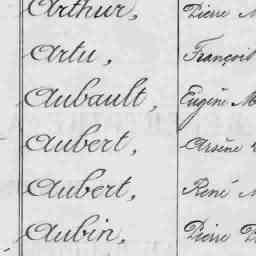 Arthur, Pierre
Artu, François
Aubault, Eugène
Aubert, Arsène
Aubert, René
Aubin, Pierre